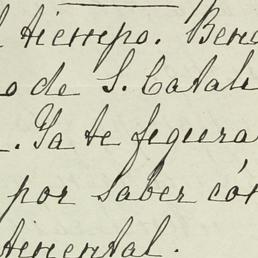 l tierrpo. Bere
o de S. Catali
. Ya te figura
por saber có
timental.